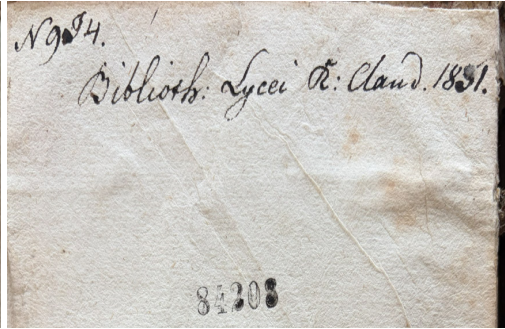 N 934.
Biblioth: Lycei R: Claud. 1831.
84208